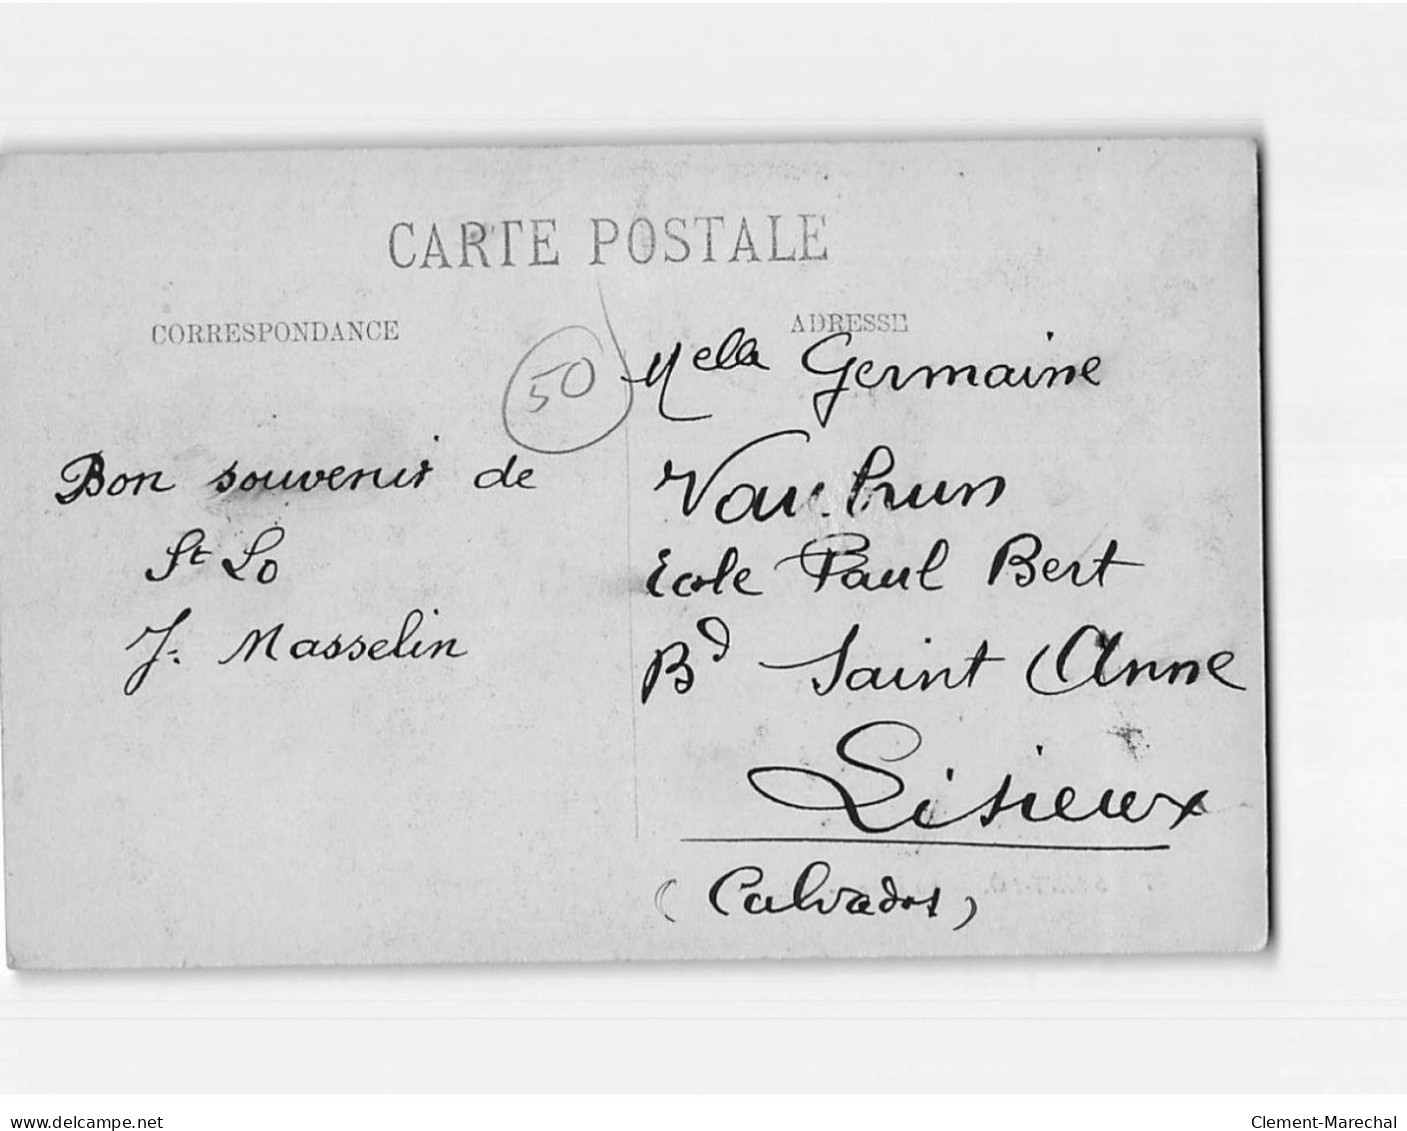 CARTE POSTALE
CORRESPONDANCE
ADRESSE
50
Bon souvenir de
St Lo
J. Masselin
Melle Germaine
Ecole Paul Bert
Bd Saint Anne
Lisieux
(Calvados)
www.delcampe.net
Clement-Marechal